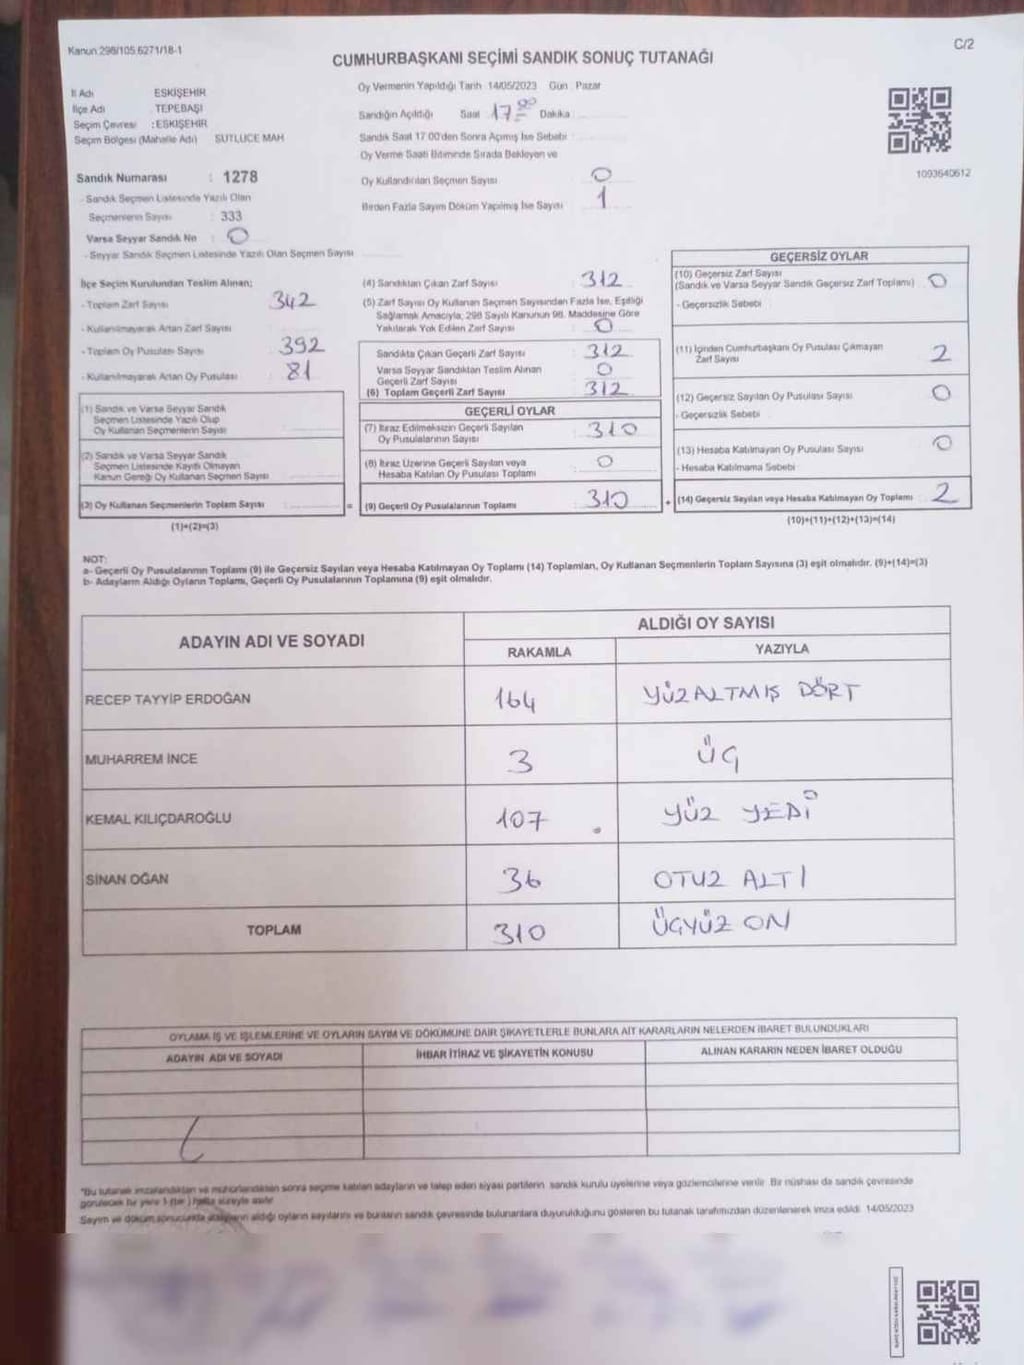 Kanun:298/105.6271/18-1
C/2
CUMHURBAŞKANI SEÇİMİ SANDIK SONUÇ TUTANAĞI
İl Adı : ESKİŞEHİR
İlçe Adı : TEPEBAŞI
Seçim Çevresi : ESKİŞEHİR
Seçim Bölgesi (Mahalle Adı) SUTLUCE MAH
Sandık Numarası : 1278
- Sandık Seçmen Listesinde Yazılı Olan
Seçmenlerin Sayısı : 333
Varsa Seyyar Sandık No : 0
- Seyyar Sandık Seçmen Listesinde Yazılı Olan Seçmen Sayısı
Oy Vermenin Yapıldığı Tarih 14/05/2023 Gün : Pazar
Sandığın Açıldığı Saat 17:00 Dakika
Sandık Saat 17:00'den Sonra Açımış İse Sebebi :
Oy Verme Saati Bitiminde Sırada Bekleyen ve
Oy Kullandırılan Seçmen Sayısı : 0
Birden Fazla Sayım Döküm Yapılmış İse Sayısı 1
1093640612
İlçe Seçim Kurulundan Teslim Alınan;
- Toplam Zarf Sayısı : 342
- Kullanılmayarak Artan Zarf Sayısı
- Toplam Oy Pusulası Sayısı : 392
- Kullanılmayarak Artan Oy Pusulası : 81
(1) Sandık ve Varsa Seyyar Sandık
Seçmen Listesinde Yazılı Olup
Oy Kullanan Seçmenlerin Sayısı
(2) Sandık ve Varsa Seyyar Sandık
Seçmen Listesinde Kayıtlı Olmayan
Kanun Gereği Oy Kullanan Seçmen Sayısı
(3) Oy Kullanan Seçmenlerin Toplam Sayısı
(1)+(2)=(3)
(4) Sandıktan Çıkan Zarf Sayısı : 312
(5) Zarf Sayısı Oy Kullanan Seçmen Sayısından Fazla İse, Eşitliği
Sağlamak Amacıyla, 298 Sayılı Kanunun 98. Maddesine Göre
Yakılarak Yok Edilen Zarf Sayısı : 0
Sandıkta Çıkan Geçerli Zarf Sayısı : 312
Varsa Seyyar Sandıktan Teslim Alınan
Geçerli Zarf Sayısı : 0
(6) Toplam Geçerli Zarf Sayısı : 312
GEÇERLİ OYLAR
(7) İtiraz Edilmeksizin Geçerli Sayılan
Oy Pusulalarının Sayısı : 310
(8) İtiraz Üzerine Geçerli Sayılan veya
Hesaba Katılan Oy Pusulası Toplamı : 0
= (9) Geçerli Oy Pusulalarının Toplamı : 310
GEÇERSİZ OYLAR
(10) Geçersiz Zarf Sayısı
(Sandık ve Varsa Seyyar Sandık Geçersiz Zarf Toplamı) : 0
- Geçersizlik Sebebi
(11) İçinden Cumhurbaşkanı Oy Pusulası Çıkmayan
Zarf Sayısı 2
(12) Geçersiz Sayılan Oy Pusulası Sayısı 0
- Geçersizlik Sebebi
(13) Hesaba Katılmayan Oy Pusulası Sayısı 0
- Hesaba Katılmama Sebebi
+ (14) Geçersiz Sayılan veya Hesaba Katılmayan Oy Toplamı : 2
(10)+(11)+(12)+(13)=(14)
NOT:
a- Geçerli Oy Pusulalarının Toplamı (9) ile Geçersiz Sayılan veya Hesaba Katılmayan Oy Toplamı (14) Toplamları, Oy Kullanan Seçmenlerin Toplam Sayısına (3) eşit olmalıdır. (9)+(14)=(3)
b- Adayların Aldığı Oyların Toplamı, Geçerli Oy Pusulalarının Toplamına (9) eşit olmalıdır.
ADAYIN ADI VE SOYADI
ALDIĞI OY SAYISI
RAKAMLA YAZIYLA
RECEP TAYYİP ERDOĞAN 164 YÜZALTMIŞ DÖRT
MUHARREM İNCE 3 ÜÇ
KEMAL KILIÇDAROĞLU 107 YÜZ YEDİ
SİNAN OĞAN 36 OTUZ ALTI
TOPLAM 310 ÜÇYÜZ ON
OYLAMA İŞ VE İŞLEMLERİNE VE OYLARIN SAYIM VE DÖKÜMÜNE DAİR ŞİKAYETLERLE BUNLARA AİT KARARLARIN NELERDEN İBARET BULUNDUKLARI
ADAYIN ADI VE SOYADI İHBAR İTİRAZ VE ŞİKAYETİN KONUSU ALINAN KARARIN NEDEN İBARET OLDUĞU
"Bu tutanak imzalandıktan ve mühürlendikten sonra seçime katılan adayların ve talep eden siyasi partilerin sandık kurulu üyelerine veya gözlemcilerine verilir. Bir nüshası da sandık çevresinde
görülecek bir yere 1 (bir) hafta süreyle asılır.
Sayım ve döküm sonucunda adayların aldığı oyların sayılarını ve bunların sandık çevresinde bulunanlara duyurulduğunu gösteren bu tutanak tarafımızdan düzenlenerek imza edildi. 14/05/2023